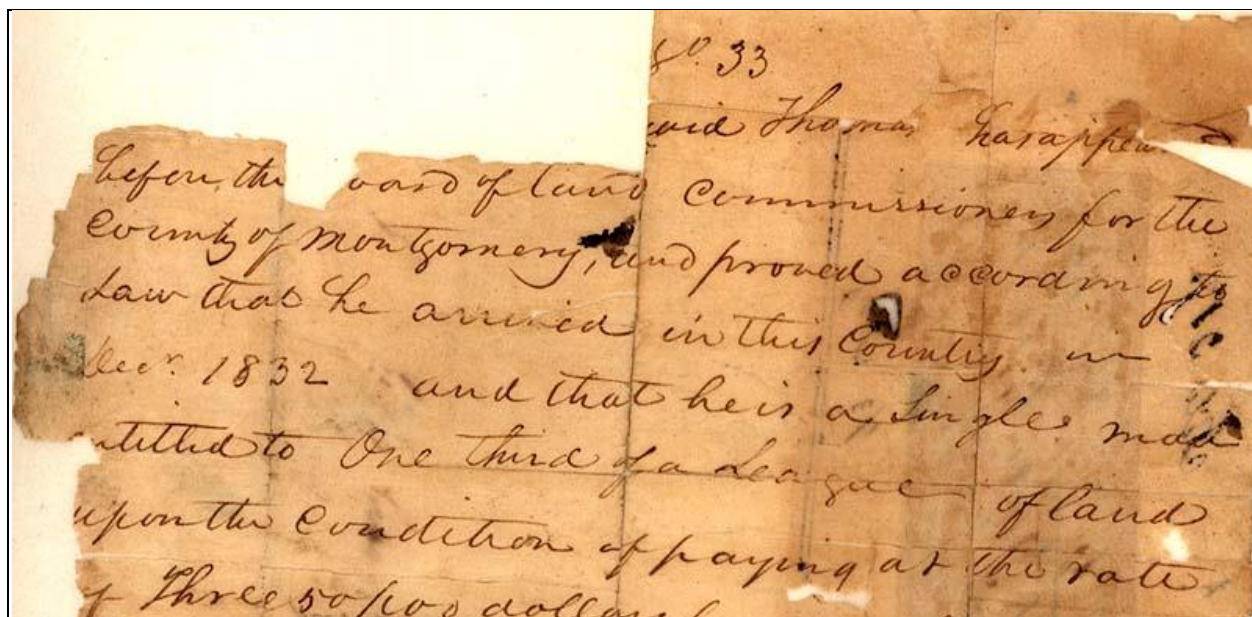 No. 33
Thomas has
before the of land commissioners for the
County of Montgomery, and proved according to
Law that he arrived in this Country in
Decr. 1832 and that he is a Single man
entitled to One third of a League of land
upon the Condition of paying at the rate
of Three 50/100 dollars